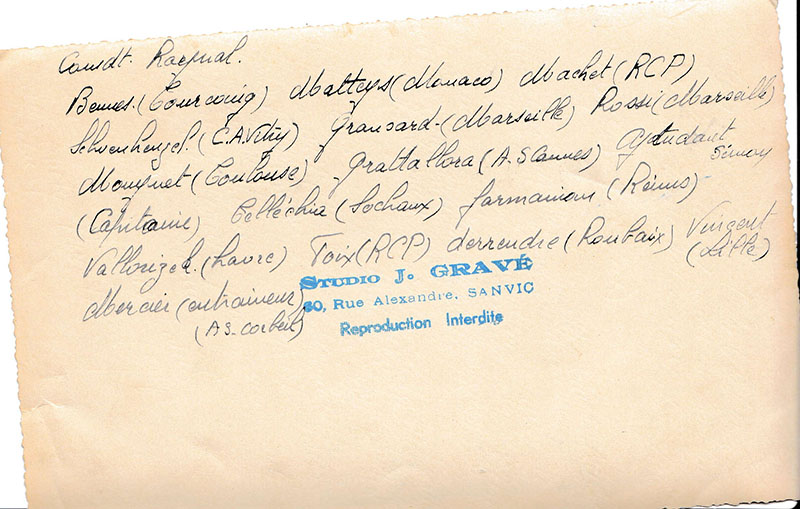 Comdt. Raynal.
Bennes. (Tourcoing) Matteys (Monaco) Machet (RCP)
(C.A. Vitry) Gransard- (Marseille) Rossi (Marseille)
Mouynet (Toulouse) Grattallora (A.S Cannes) Ajtudant Simon
(Capitaine) Celléchia (Sochaux) Jarmainon (Reims)
(Havre) Foix (RCP) derrendre (Roubaix) Vincent (Lille)
Mercier (entraineur)
(AS-Corbeil)
STUDIO J. GRAVÉ
60, Rue Alexandre. SANVIC
Reproduction Interdite